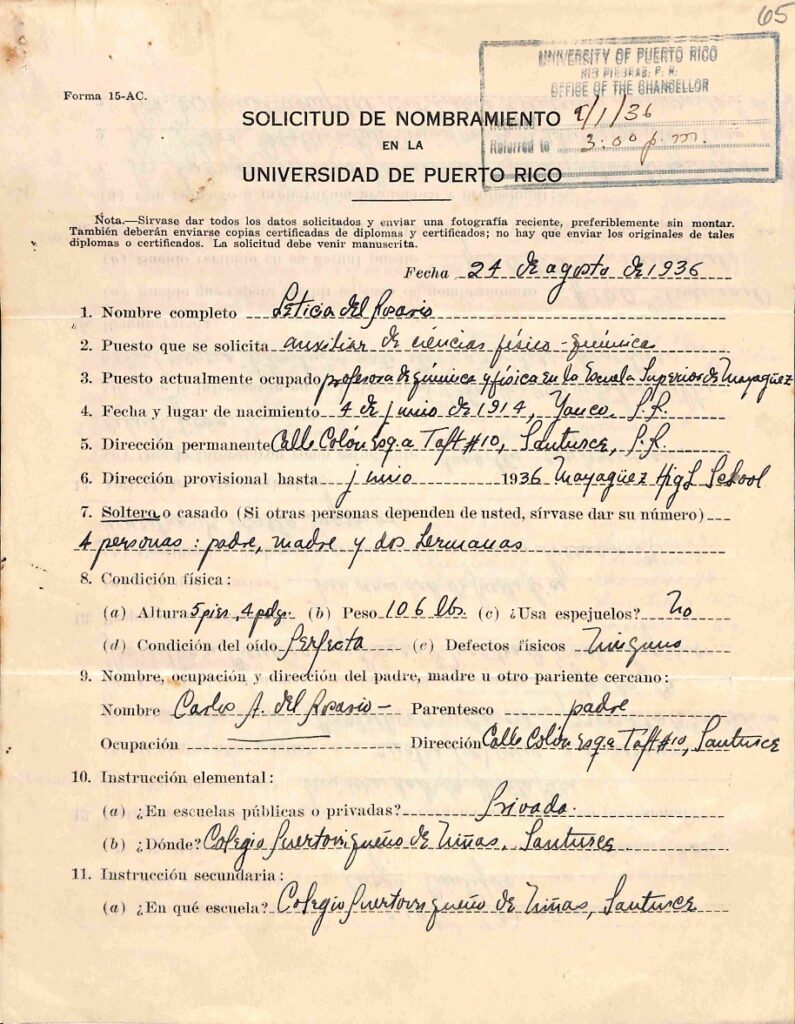 65
UNIVERSITY OF PUERTO RICO
RIO PIEDRAS, P. R.
OFFICE OF THE CHANCELLOR
Received 9/1/36
Referred to 3:00 p.m.
Forma 15-AC.
SOLICITUD DE NOMBRAMIENTO
EN LA
UNIVERSIDAD DE PUERTO RICO
Nota.—Sírvase dar todos los datos solicitados y enviar una fotografía reciente, preferiblemente sin montar.
También deberán enviarse copias certificadas de diplomas y certificados; no hay que enviar los originales de tales
diplomas o certificados. La solicitud debe venir manuscrita.
Fecha 24 de agosto de 1936
1. Nombre completo Leticia del Rosario
2. Puesto que se solicita auxiliar de ciencias físico-químicas
3. Puesto actualmente ocupado profesora de química y física en la Escuela Superior de Mayagüez
4. Fecha y lugar de nacimiento 4 de junio de 1914, Yauco, P.R.
5. Dirección permanente Calle Colón esq.a Taft #10, Santurce, P.R.
6. Dirección provisional hasta junio 1936 Mayagüez High School
7. Soltera o casado (Si otras personas dependen de usted, sírvase dar su número)
4 personas: padre, madre y dos hermanas
8. Condición física:
(a) Altura 5 pies, 4 pulgs. (b) Peso 106 lbs. (c) ¿Usa espejuelos? No
(d) Condición del oído Perfecta (e) Defectos físicos Ninguno
9. Nombre, ocupación y dirección del padre, madre u otro pariente cercano:
Nombre Carlos A. del Rosario — Parentesco padre
Ocupación — Dirección Calle Colón esq.a Taft #10, Santurce
10. Instrucción elemental:
(a) ¿En escuelas públicas o privadas? Privada.
(b) ¿Dónde? Colegio Puertorriqueño de Niñas, Santurce
11. Instrucción secundaria:
(a) ¿En qué escuela? Colegio Puertorriqueño de Niñas, Santurce